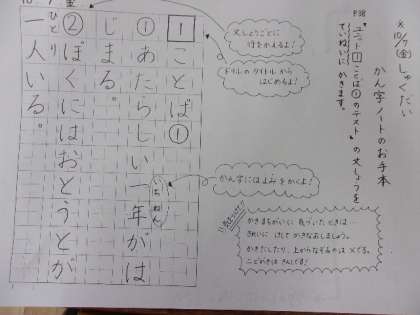 ※10/7(金)しゅくだい
かん字ノートのお手本
P38
"ユニット1ことば①のテスト"の文しょうを
ていねいに かきます。
文しょうごとに
行をかえるよ!
ドリルのタイトルから
はじめるよ!
かん字にはよみをかくよ!
かきまちがいに 気づいたときは…
きれいに けして かきなおしましょう。
かきたしたり、上からなぞるのは ×です。
10/7 金
1 ことば①
① あたらしい一年がは
いちねん
じまる。
② ぼくにはおとうとが
一人いる。
ひとり